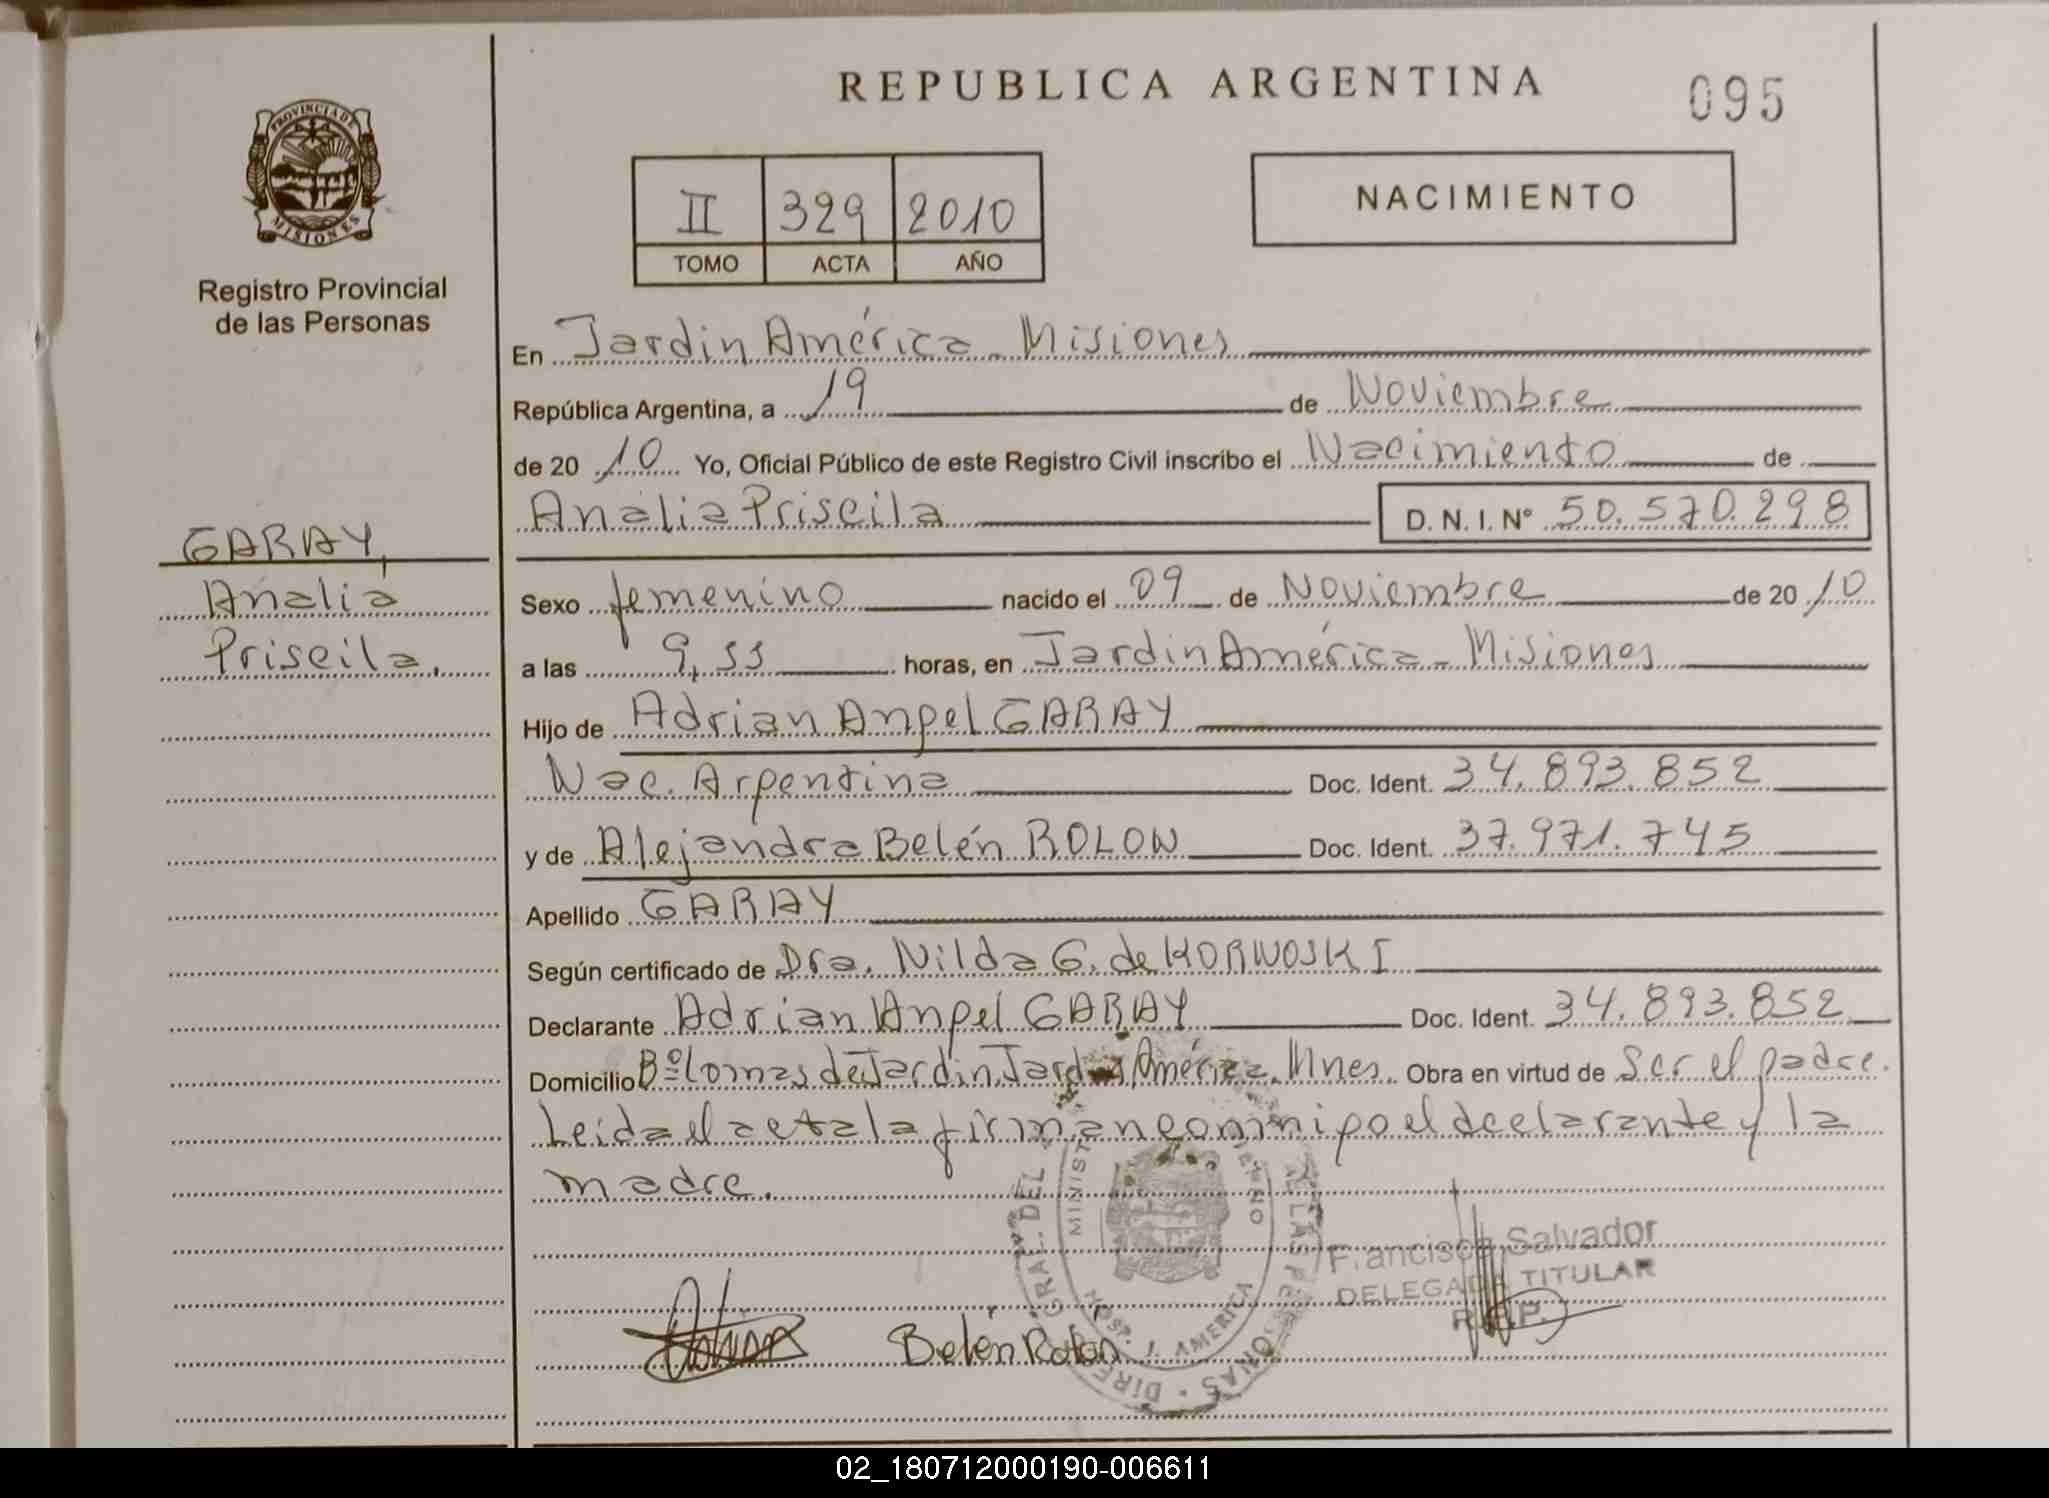 REPUBLICA ARGENTINA
095
PROVINCIA DE MISIONES
Registro Provincial
de las Personas
II 329 2010
TOMO ACTA AÑO
NACIMIENTO
En Jardin América - Misiones
República Argentina, a 19 de Noviembre
de 20 10 Yo, Oficial Público de este Registro Civil inscribo el Nacimiento de
Analia Priscila D. N. I. Nº 50.570.298
GARAY,
Analia
Priscila.
Sexo femenino nacido el 09 de Noviembre de 20 10
a las 9,55 horas, en Jardin América - Misiones
Hijo de Adrian Angel GARAY
Nac. Argentina Doc. Ident. 34.893.852
y de Alejandra Belén ROLON Doc. Ident. 37.971.745
Apellido GARAY
Según certificado de Dra. Nilda G. de KORNOSKI
Declarante Adrian Angel GARAY Doc. Ident. 34.893.852
Domicilio Bº Lomas de Jardin, Jardin América. Mnes. Obra en virtud de Ser el padre.
Leida el acta la firman conmigo el declarante y la
madre.
Francisca Salvador
DELEGADA TITULAR
R.P.P.
Belén Rolon
GRAL. DEL
HOSP. J. AMERICA
02_180712000190-006611